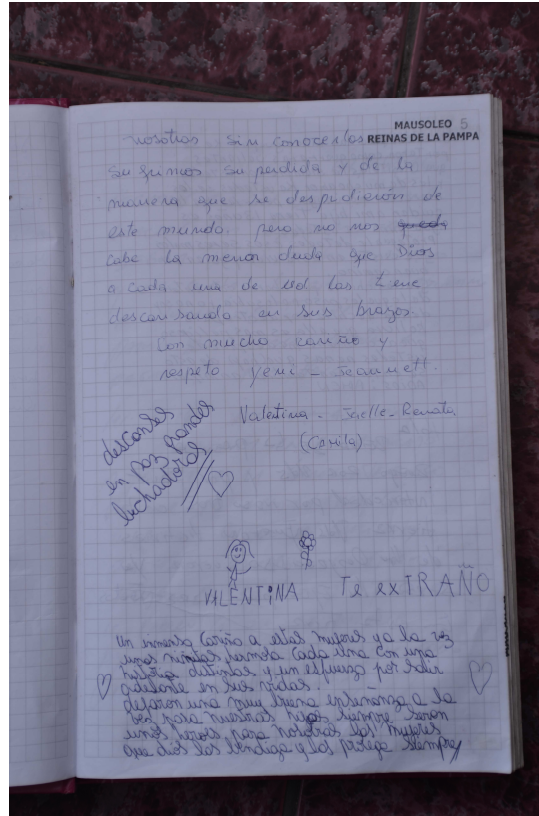 MAUSOLEO 5
REINAS DE LA PAMPA
nosotros sin conocerlas
sufrimos su perdida y de la
manera que se despidieron de
este mundo. pero no nos queda
cabe la menor duda que Dios
a cada una de ud las tiene
descansando en sus brazos.
Con mucho cariño y
respeto yeni - Jeannett.
Valentina - Jaelle - Renata
(Camila)
descansen
en paz grandes
luchadoras
VALENTINA Te exTRAÑO
Un inmenso Cariño a estas mujeres ya la vez
unas niñitas Cada una con una
historia distintas y un esfuerzo por salir
adelante en sus vidas.
dejaron una muy buena enseñanza a la
vez para nuestras hijas siempre seran
unos heroes para nosotras las mujeres
que dios las bendiga y las proteja siempre